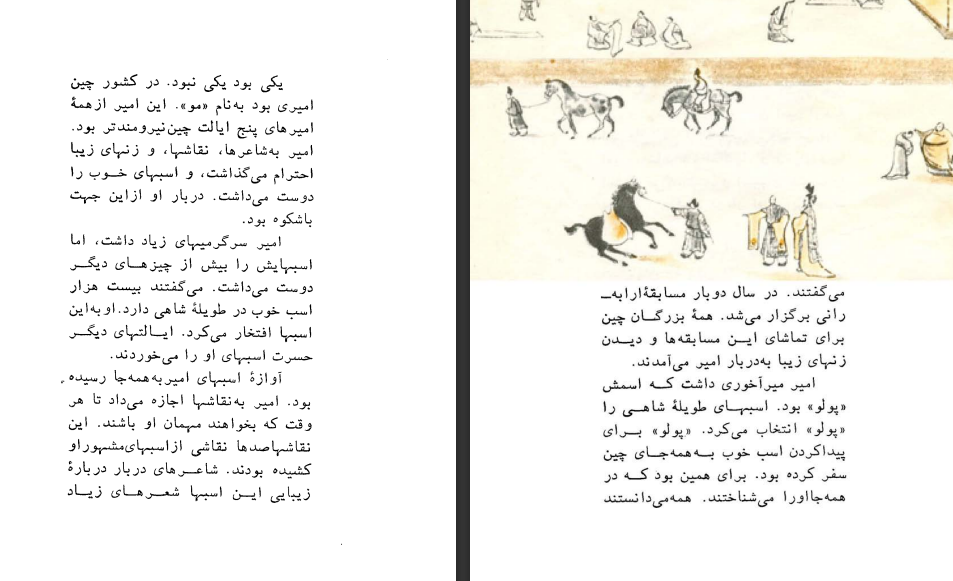 یکی بود یکی نبود. در کشور چین
امیری بود به‌نام «مو». این امیر ازهمهٔ
امیرهای پنج ایالت چین‌نیرومندتر بود.
امیر به‌شاعرها، نقاشها، و زنهای زیبا
احترام می‌گذاشت، و اسبهای خـوب را
دوست می‌داشت. دربار او ازاین جهت
باشکوه بود.
امیر سرگرمیهای زیاد داشت، اما
اسبهایش را بیش از چیزهـای دیگـر
دوست می‌داشت. می‌گفتند بیست هزار
اسب خوب در طویلهٔ شاهی دارد. او به‌این
اسبها افتخار می‌کرد. ایـالتهای دیگـر
حسرت اسبهای او را می‌خوردند.
آوازهٔ اسبهای امیر به‌همه‌جا رسیده
بود. امیر به‌نقاشها اجازه می‌داد تا هر
وقت که بخواهند مهمان او باشند. این
نقاشهاصدها نقاشی ازاسبهای‌مشهوراو
کشیده بودند. شاعـرهای دربار دربارهٔ
زیبایی ایـن اسبها شعـرهـای زیـاد
می‌گفتند. در سال دوبار مسابقهٔ‌ارابه‌ـ
رانی برگزار می‌شد. همهٔ بزرگـان چین
برای تماشای ایـن مسابقه‌ها و دیـدن
زنهای زیبا به‌دربار امیر می‌آمدند.
امیر میرآخوری داشت کـه اسمش
«پولو» بود. اسبهـای طویلهٔ شاهـی را
«پولو» انتخاب می‌کرد. «پولو» بـرای
پیداکردن اسب خوب بـه‌همه‌جـای چین
سفر کرده بود. برای همین بود کـه در
همه‌جااورا می‌شناختند. همه‌می‌دانستند